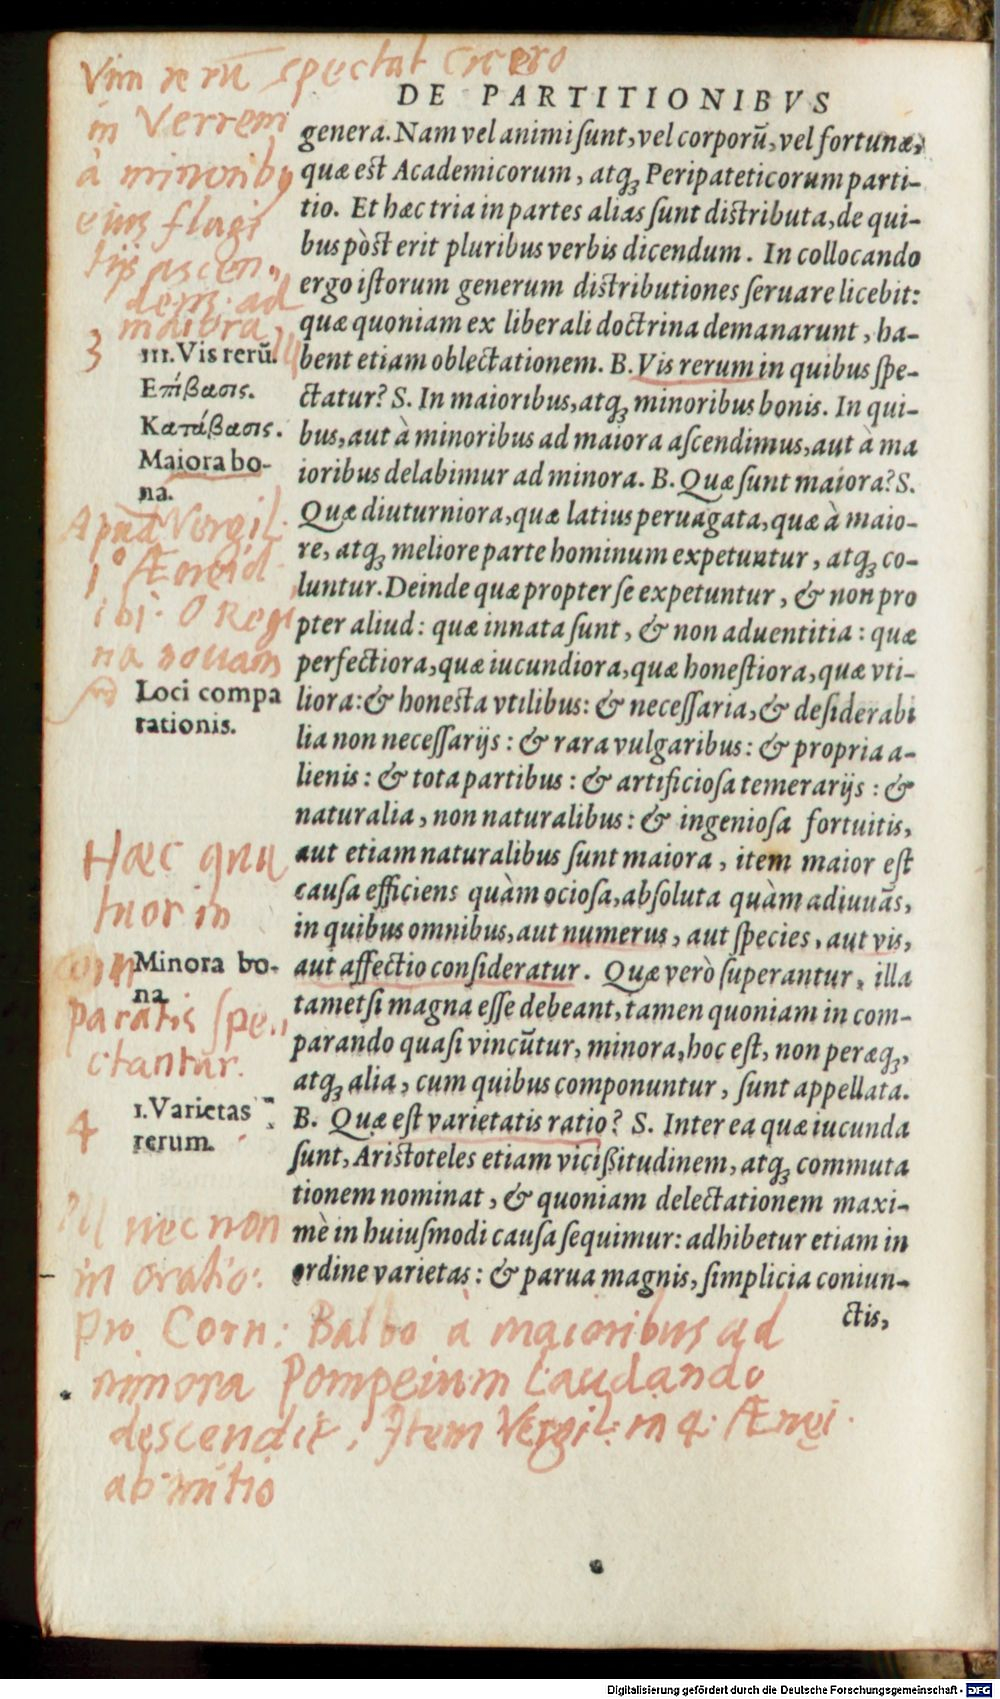 Vim rerū spectat Cicero
in Verrem
à minoribus
eius flagi
tijs ascen„
dens ad
maiora
3
DE PARTITIONIBVS
genera. Nam vel animi ſunt, vel corporū, vel fortunæ,
quæ est Academicorum, atq; Peripateticorum parti-
tio. Et hæc tria in partes alias ſunt distributa, de qui-
bus pòst erit pluribus verbis dicendum. In collocando
ergo iſtorum generum distributiones ſeruare licebit:
quæ quoniam ex liberali doctrina demanarunt, ha-
bent etiam oblectationem. B. Vis rerum in quibus ſpe-
ctatur? S. In maioribus, atq; minoribus bonis. In qui-
bus, aut à minoribus ad maiora aſcendimus, aut à ma
ioribus delabimur ad minora. B. Quæ ſunt maiora? S.
Quæ diuturniora, quæ latius peruagata, quæ à maio-
re, atq; meliore parte hominum expetuntur, atq; co-
luntur. Deinde quæ propter ſe expetuntur, & non pro
pter aliud: quæ innata ſunt, & non aduentitia: quæ
perfectiora, quæ iucundiora, quæ honeſtiora, quæ vti-
liora: & honesta vtilibus: & neceſſaria, & deſiderabi
lia non neceſſarijs: & rara vulgaribus: & propria a-
lienis: & tota partibus: & artificioſa temerarijs: &
naturalia, non naturalibus: & ingenioſa fortuitis,
aut etiam naturalibus ſunt maiora, item maior eſt
cauſa efficiens quàm ocioſa, abſoluta quàm adiuuās,
in quibus omnibus, aut numerus, aut ſpecies, aut vis,
aut affectio conſideratur. Quæ verò ſuperantur, illa
tametſi magna eſſe debeant, tamen quoniam in com-
parando quaſi vincūtur, minora, hoc eſt, non peræq;,
atq; alia, cum quibus componuntur, ſunt appellata.
B. Quæ eſt varietatis ratio? S. Inter ea quæ iucunda
ſunt, Aristoteles etiam viciſsitudinem, atq; commuta
tionem nominat, & quoniam delectationem maxi-
mè in huiuſmodi cauſa ſequimur: adhibetur etiam in
ordine varietas: & parua magnis, ſimplicia coniun-
ctis,
III. Vis rerū.
Επίβασις.
Κατάβασις.
Maiora bo-
na.
Apud Vergil.
1° Æneid
ibi. O Regi
na nouam
Loci compa
rationis.
Hæc qua
tuor in
com
Minora bo-
na.
paratis ſpe„
ctantur.
4
1. Varietas
rerum.
nec non
in oratio:
Pro Corn: Balbo à maioribus ad
minora Pompeium Laudando
descendit. Item Vergil: in 4. Ænei.
ab initio
Digitalisierung gefördert durch die Deutsche Forschungsgemeinschaft - DFG